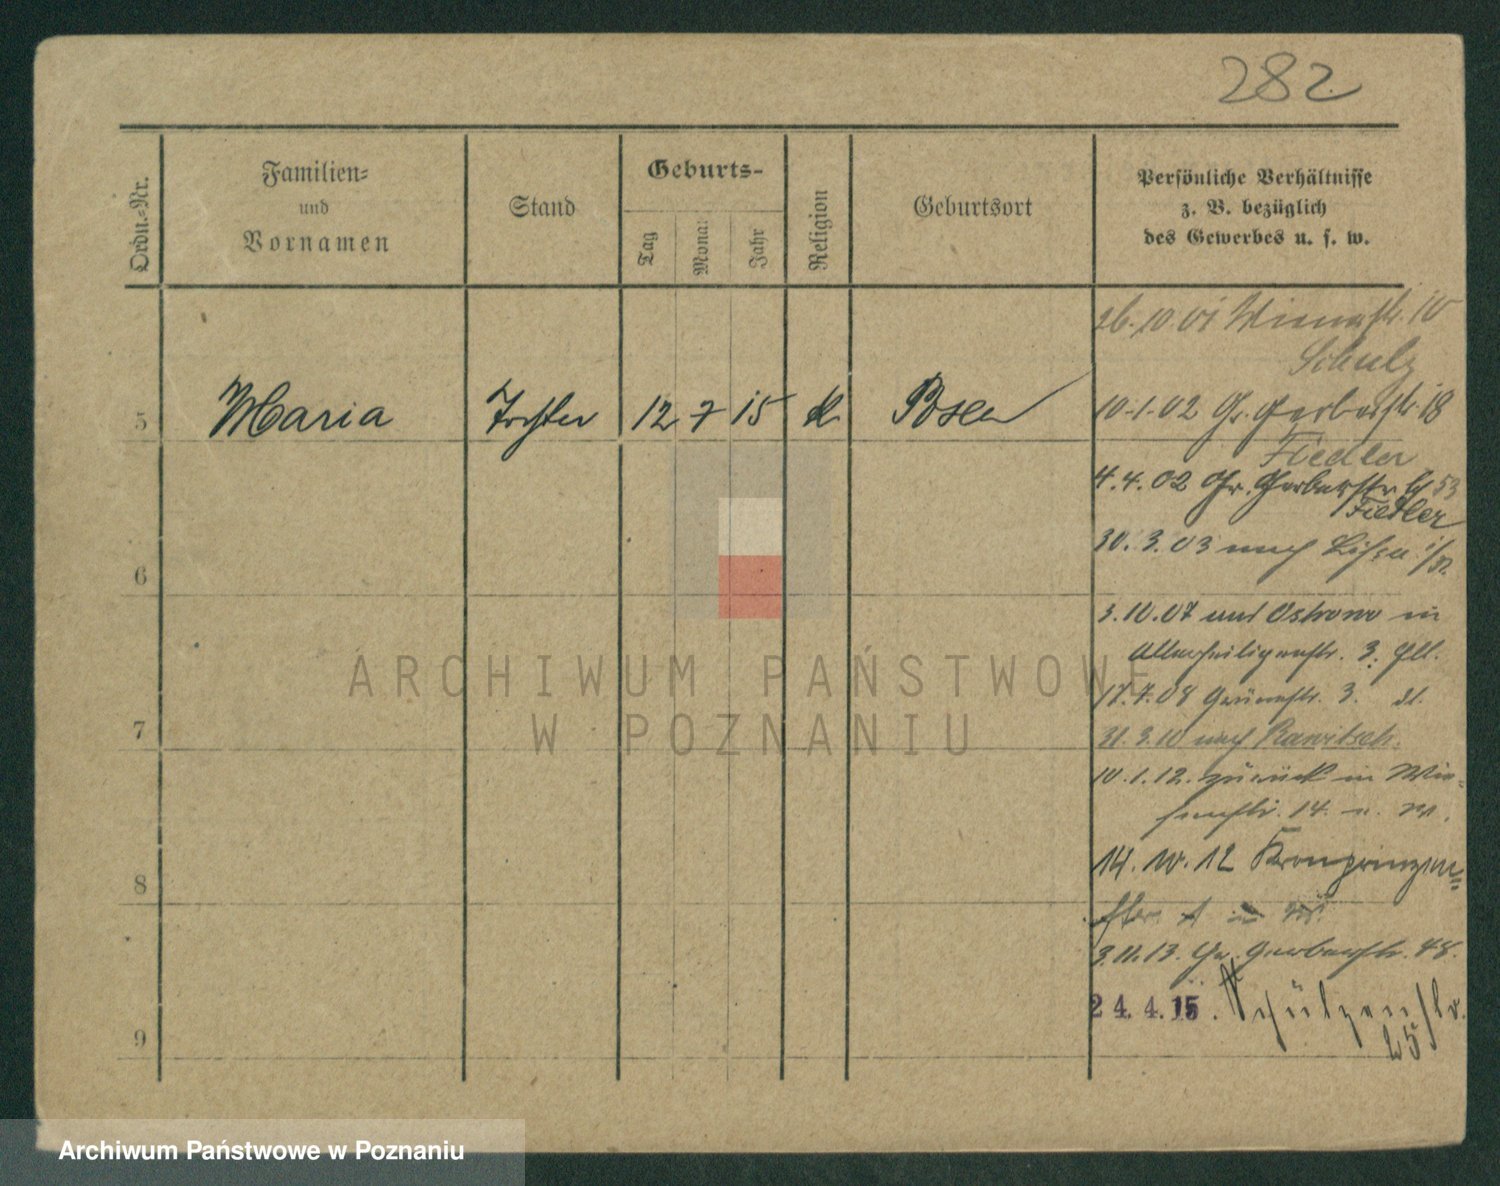 282
Ordn.-Nr.
Familien-
und
Vornamen
Stand
Geburts-
Tag
Monat
Jahr
Religion
Geburtsort
Persönliche Verhältnisse
z. B. bezüglich
des Gewerbes u. s. w.
26.10.01 10
Schulz
5 Maria Tochter 12 7 15 k. Posen
10.1.02 Gr. Gerberstr. 18
Fiedler
4.4.02 Gr. Gerberstr. 53
Fiedler
30.3.03 nach Lissa i/P.
6
3.10.07 aus Ostrowo in
Allerheiligenstr. 3.
17.7.08 Grünestr. 3.
7
31.3.10 nach Rawitsch.
10.1.12. zurück in Wie-
senstr. 14.
14.10.12 Kronprinzen-
8
3.11.13. Gr. Gerberstr. 48.
24.4.15. Schützenstr.
25
9
ARCHIWUM PAŃSTWOWE
W POZNANIU
Archiwum Państwowe w Poznaniu